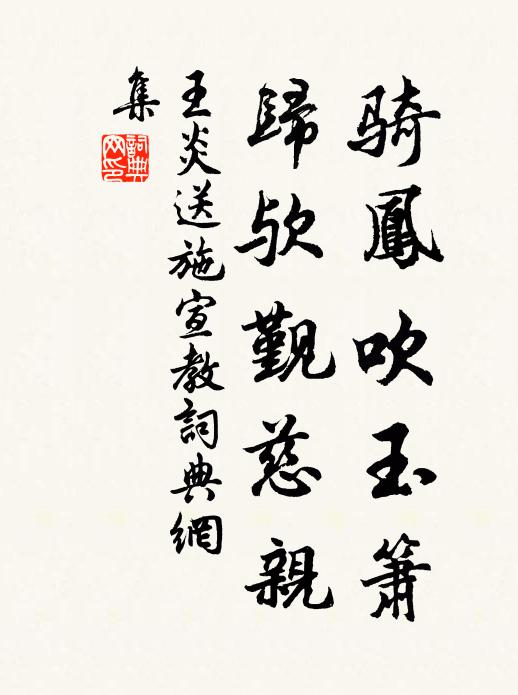 騎鳳吹玉簫
歸歟覲慈親
王炎送施宣教詞典網
集
詞典
网印